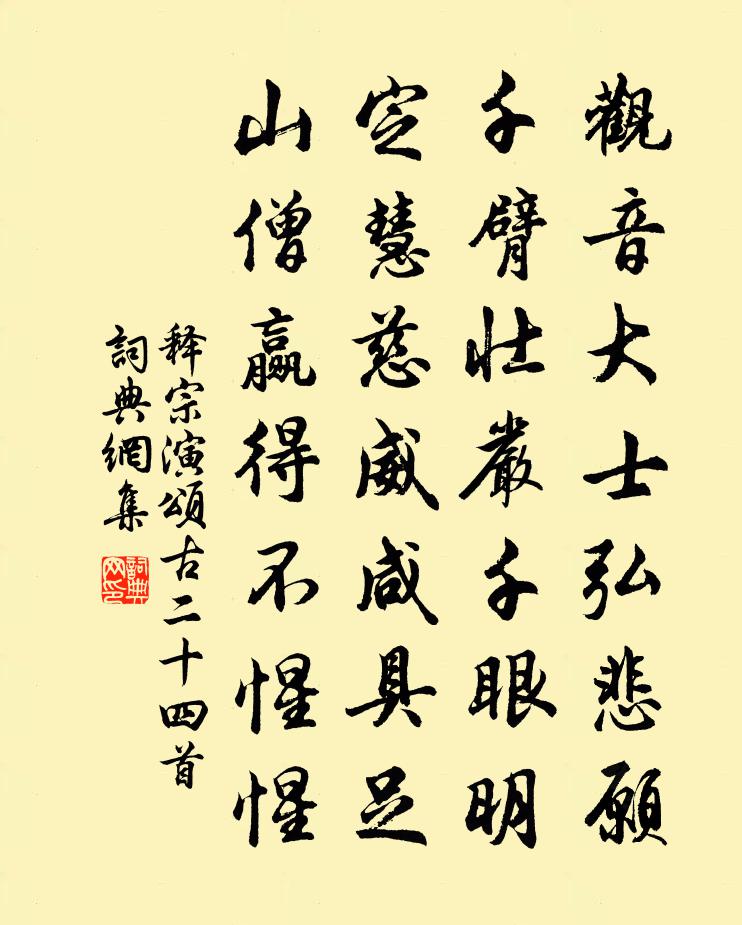 觀音大士弘悲願
千臂壯嚴千眼明
定慧慈威咸具足
山僧贏得不惺惺
释宗演頌古二十四首
詞典網集
詞典網印